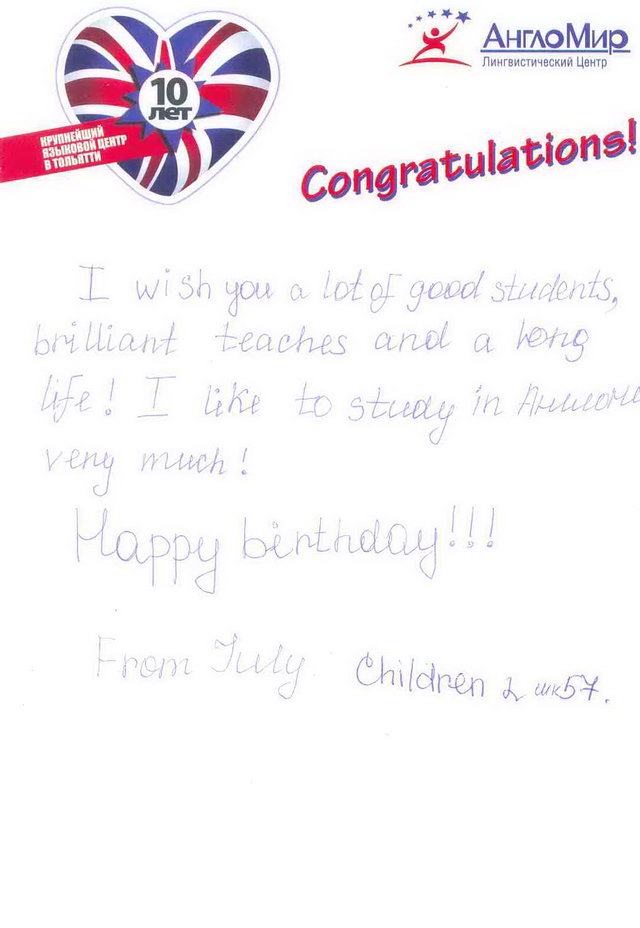 10
лет
КРУПНЕЙШИЙ
ЯЗЫКОВОЙ ЦЕНТР
В ТОЛЬЯТТИ
АнглоМир
Лингвистический Центр
Congratulations!
I wish you a lot of good students,
brilliant teaches and a long
life! I like to study in
very much!
Happy birthday!!!
From July Children 2 шк57.